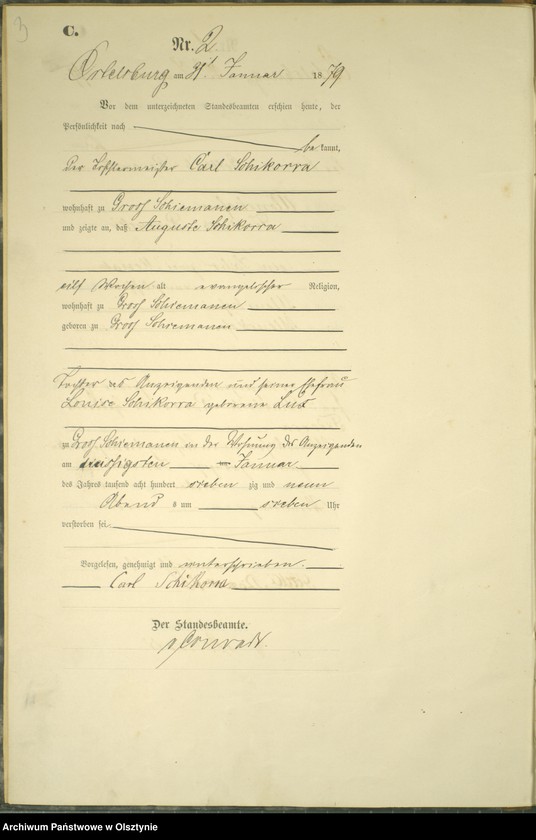 3
C.
Nr. 2
Ortelsburg am 31t Januar 1879
Vor dem unterzeichneten Standesbeamten erschien heute, der
Persönlichkeit nach
be kannt,
der Carl Schikorra
wohnhaft zu Gross Schiemanen
und zeigte an, daß Auguste Schikorra
eilf Wochen alt evangelischer Religion,
wohnhaft zu Gross Schiemanen
geboren zu Gross Schiemanen
Tochter des Anzeigenden und seiner Ehefrau
Louise Schikorra geborene Lux
zu Gross Schiemanen in der Wohnung des Anzeigenden
am dreissigsten Januar
des Jahres tausend acht hundert sieben zig und neun
Abend s um sieben Uhr
verstorben sei.
Vorgelesen, genehmigt und unterschrieben.
Carl Schikorra
Der Standesbeamte.
v Conradt.
Archiwum Państwowe w Olsztynie